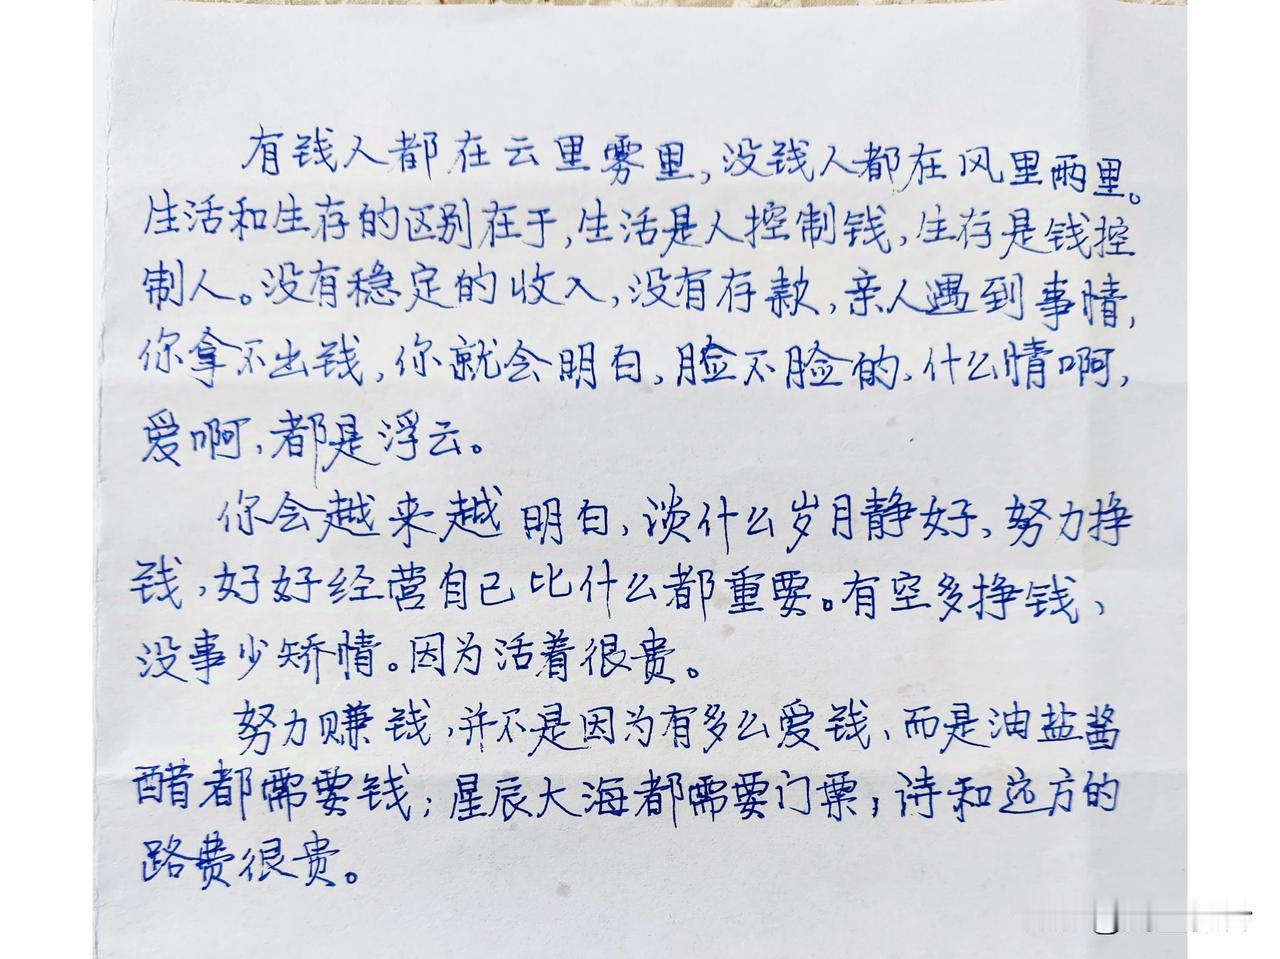 有钱人都在云里雾里,没钱人都在风里雨里。
生活和生存的区别在于,生活是人控制钱,生存是钱控
制人。没有稳定的收入,没有存款,亲人遇到事情,
你拿不出钱,你就会明白,脸不脸的、什么情啊,
爱啊,都是浮云。
你会越来越明白,淡什么岁月静好、努力挣
钱,好好经营自己比什么都重要。有空多挣钱、
没事少矫情。因为活着很贵。
努力赚钱,并不是因为有多么爱钱、而是油盐酱
醋都需要钱;星辰大海都需要门票;诗和远方的
路费很贵。